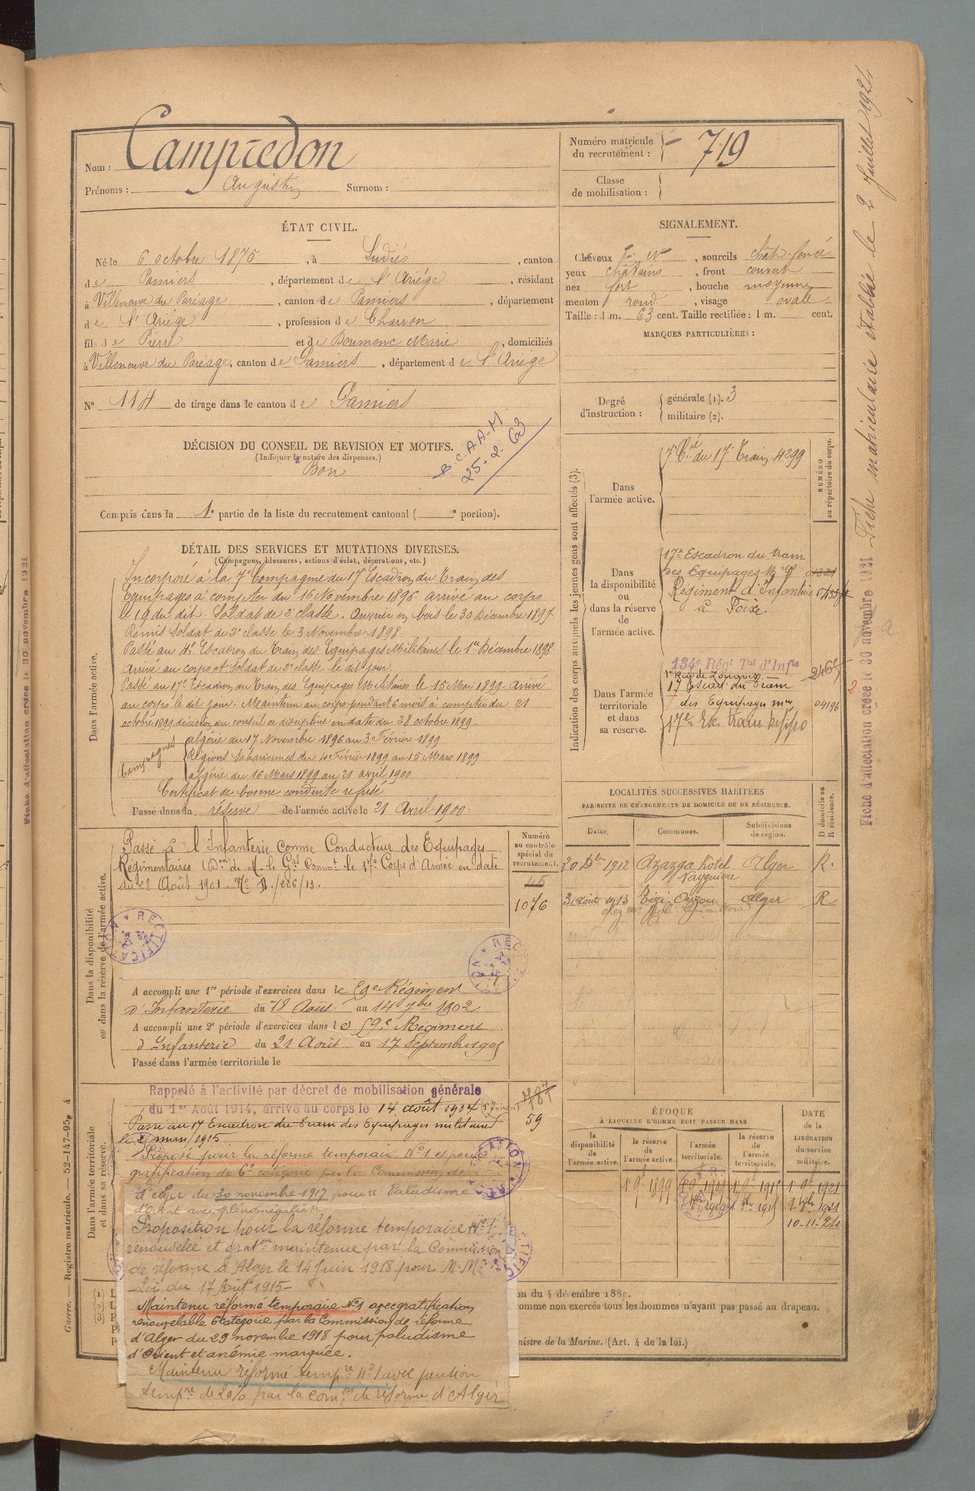 Nom : Campredon
Prénoms : Augustin Surnom :
Numéro matricule du recrutement : 719
Classe de mobilisation :
ÉTAT CIVIL.
Né le 6 octobre 1875, à Ludiès, canton
de Pamiers, département de l'Ariège, résidant
à Villeneuve du Paréage, canton de Pamiers, département
de l'Ariège, profession de Charron
fils de Pierre et de Doumenc Marie, domiciliés
à Villeneuve du Paréage, canton de Pamiers, département de l'Ariège
N° 114 de tirage dans le canton de Pamiers
SIGNALEMENT.
Cheveux , sourcils chât. foncé
yeux châtains, front couvert
nez fort, bouche moyenne
menton rond, visage ovale
Taille : 1 m. 63 cent. Taille rectifiée : 1 m. cent.
MARQUES PARTICULIÈRES :
Degré d'instruction : générale (1). 3
militaire (2).
DÉCISION DU CONSEIL DE REVISION ET MOTIFS.
(Indiquer la nature des dispenses.)
Bon
25-2-63
Compris dans la 1e partie de la liste du recrutement cantonal ( e portion).
DÉTAIL DES SERVICES ET MUTATIONS DIVERSES.
(Campagnes, blessures, actions d'éclat, décorations, etc.)
Dans l'armée active.
Incorporé à la 7e Compagnie du 17e Escadron du Train des
Équipages à compter du 16 Novembre 1896. arrivé au corps
le 19 du dit. Soldat de 2e classe. Ouvrier en bois le 30 Décembre 1897.
Remis Soldat de 2e classe le 3 Novembre 1898.
Passé au Escadron du Train des Équipages Militaires le 1er Décembre 1898
Arrivé au corps et Soldat de 2e classe le dit jour.
Passé au 17e Escadron du Train des Équipages Militaires le 15 Mai 1899. Arrivé
au corps le dit jour. Maintenu au corps pendant 6 mois à compter du 21
octobre 1899 décision du conseil de discipline en date du 28 octobre 1899.
Campagnes
Algérie du 17 Novembre 1896 au 3 Février 1899
Régions Sahariennes du 4 Février 1899 au 15 Mars 1899
Algérie du 16 Mars 1899 au 21 avril 1900
Certificat de bonne conduite refusé
Passé dans la réserve de l'armée active le 21 Avril 1900
Indication des corps auxquels les jeunes gens sont affectés (3).
NUMÉRO au répertoire du corps.
Dans l'armée active.
7e Cie du 17e Train 4299
Dans la disponibilité ou dans la réserve de l'armée active.
17e Escadron du train
des Equipages
Régiment d'Infanterie
à Foix.
Dans l'armée territoriale et dans sa réserve.
134e Régt Tal d'Infie
17 Escad du Train
des Equipages mres 04196
LOCALITÉS SUCCESSIVES HABITÉES
PAR SUITE DE CHANGEMENTS DE DOMICILE OU DE RÉSIDENCE.
Dates. Communes. Subdivisions de région. D domicile ou R résidence.
20 Dbre 1912 Azazga hôtel Alger R.
21 Août 1913 Tizi Ouzou Alger R
Dans la disponibilité ou dans la réserve de l'armée active.
Numéro au contrôle spécial du recrutement.
1076
Passé à l'Infanterie comme Conducteur des Equipages
Régimentaires (Don de M. le Gal Commt le 17e Corps d'Armée en date
du 28 Août 1901.
RECTIFICATION
RECTIFICATION
A accompli une 1re période d'exercices dans le 59e Régiment
d'Infanterie du 18 Août au 14 7bre 1902
A accompli une 2e période d'exercices dans le 59e Régiment
d'Infanterie du 21 Août au 17 Septembre 1905
Passé dans l'armée territoriale le
Dans l'armée territoriale et dans sa réserve.
Rappelé à l'activité par décret de mobilisation générale
du 1er Août 1914, arrivé au corps le 14 août 1914
Passé au 17 Escadron du Train des Equipages militaires
le mars 1915
59
Proposé pour la réforme temporaire N°1 et pour
gratification de 6e catégorie par la Commission
d'Alger du 20 novembre 1917 pour Paludisme
d'Orient avec splénomégalie.
Proposition pour la réforme temporaire N°1
renouvelée et gration maintenue par la Commission
de réforme d'Alger le 14 Juin 1918 pour M. M.
Loi du 17 Août 1915-
Maintenu réforme temporaire N°1 avec gratification
renouvelable 6e catégorie par la Commission de réforme
d'Alger du 29 novembre 1918 pour paludisme
d'Orient et anémie marquée.
Maintenu réformé tempre N°1 avec pension
tempre de 20% par la Comon de réforme d'Alger
ÉPOQUE
À LAQUELLE L'HOMME DOIT PASSER DANS
la disponibilité de l'armée active. la réserve de l'armée active. l'armée territoriale. la réserve de l'armée territoriale.
DATE de la LIBÉRATION du service militaire.
1 9bre 1899
1 9bre 1921
10-11-21
on du 4 décembre 188
omme non exercés tous les hommes n'ayant pas passé au drapeau.
nistre de la Marine. (Art. 4 de la loi.)
Guerre. — Registre matricule. — 52-147-95.
Fiche matriculaire établie le 2 Juillet 1924
Fiche d'affectation créée le 30 novembre 1931
Fiche d'affectation créée le 30 novembre 1931